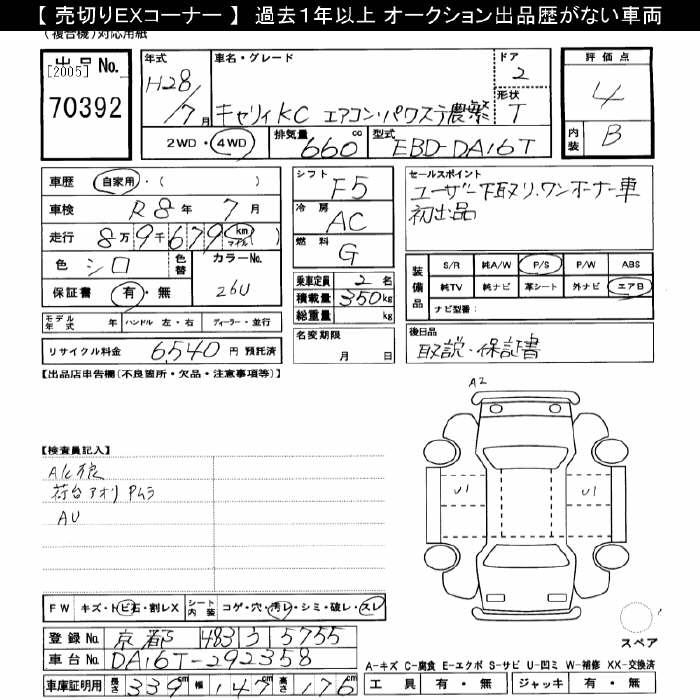 【売切りEXコーナー】 過去1年以上 オークション出品歴がない車両
(複合機)対応用紙
出品No.
[2005]
70392
年式 H28/7月
車名・グレード
キャリィKC エアコン・パワステ農繁
ドア 2
形状 T
評価点 4
内装 B
2WD・4WD
排気量 660 cc
型式 EBD-DA16T
車歴 自家用・( )
車検 R8年 7月
走行 8万9千679 km マイル( )
色 シロ
色替
カラーNo. 26U
保証書 有・無
モデル年式 年 ハンドル 左・右 ディーラー・並行
リサイクル料金 6,540 円 預託済
シフト F5
冷房 AC
燃料 G
乗車定員 2名
積載量 350kg
総重量 kg
名変期限
月 日
セールスポイント
ユーザー下取り、ワンオーナー車
初出品
装備品
S/R 純A/W P/S P/W ABS
純TV 純ナビ 革シート 外ナビ エアB
ナビ型番:
後日品
取説・保証書
【出品店申告欄(不良箇所・欠品・注意事項等)】
【検査員記入】
荷台アオリ
AU
A2
U1
U1
スペア
FW キズ・トビ石・割レX
シート内装 コゲ・穴・汚レ・シミ・破レ・スレ
登録No. 京都 483 う 5755
車台No. DA16T-292358
車庫証明用 長さ 339cm 幅 147cm 高さ 176cm
A-キズ C-腐食 E-エクボ S-サビ U-凹ミ W-補修 XX-交換済
工具 有・無 ジャッキ 有・無